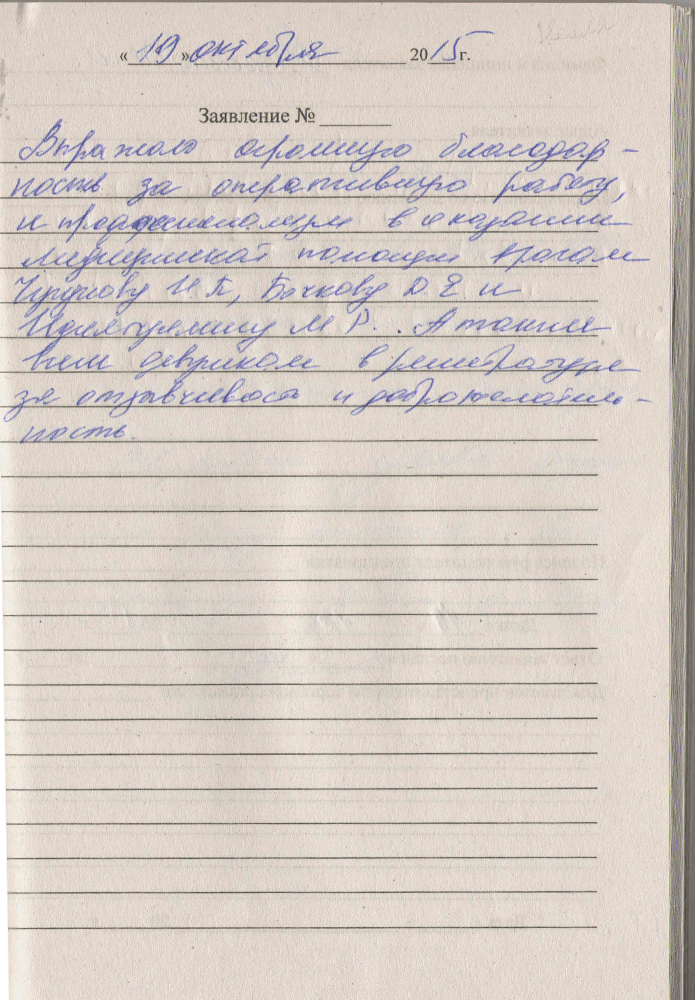 « 19 » октября 2015 г.
Заявление №
Выражаю огромную благодар-
ность за оперативную работу,
и профессионализм в оказании
медицинской помощи врачам
И.П, Бочкову Д Е и
М Р. . А также
всем девушкам в регистратуре
за отзывчивость и доброжелатель-
ность.